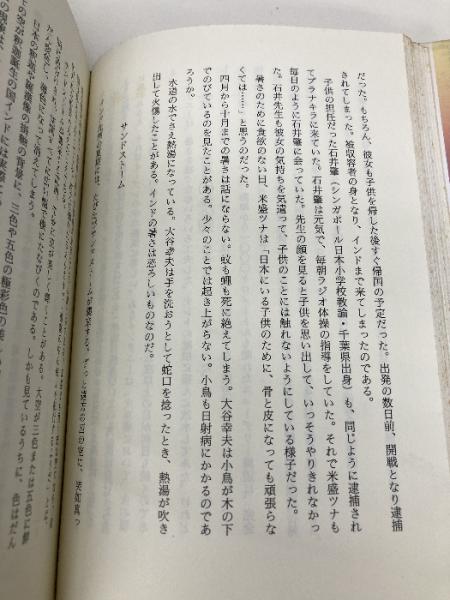 だった。もちろん、彼女も子供を帰した後すぐ帰国の予定だった。出発の数日前、開戦となり逮捕
されてしまった。被収容者の身となり、インドまで来てしまったのである。
子供の担任だった石井肇（シンガポール日本小学校教諭・千葉県出身）も、同じように逮捕され
てプラナキラに来ていた。石井肇は元気で、毎朝ラジオ体操の指導をしていた。それで米盛ツナも
毎日のように石井肇に会っていた。先生の顔を見ると子供を思い出して、いっそうやりきれなかっ
た。石井先生も彼女の気持ちを気遣って、子供のことには触れないようにしている様子だった。
暑さのために食欲のない日、米盛ツナは「日本にいる子供のために、骨と皮になっても頑張らな
くては……」と思うのだった。
四月から十月までの暑さは話にならない。蚊も蠅も死に絶えてしまう。大谷幸夫は小鳥が木の下
でのびているのを見たことがある。少々のことでは起き上がらない。小鳥も日射病にかかるのであ
ろうか。
水道の水でさえ熱湯になっている。大谷幸夫は手を洗おうとして蛇口を捻ったとき、熱湯が吹き
出して火傷したことがある。インドの暑さは恐ろしいものなのだ。
サンドストリーム
消えてしまう。
日本の釈迦や羅漢像の頭軸の背景に、三色や五色の極彩色の美し
大空が三色または五色に鮮
しかも見ているうちに、色はだん